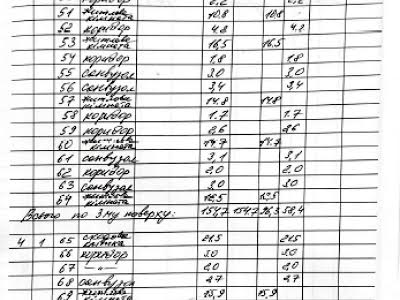 51 житлова кімната 10,8 - 10,8 -
52 коридор 4,2 - 4,2
53 житлова кімната 16,5 16,5
54 коридор 1,8 1,8
55 санвузол 3,0 3,0
56 санвузол 3,4 3,4
57 житлова кімната 14,8 14,8
58 коридор 1.7 1.7
59 коридор 2,6 2,6
60 житлова кімната 14.7 14.7
61 санвузол 3,1 3,1
62 коридор 2.0 2.0
63 санвузол 3.0 3.0
64 житлова кімната 12,5 12,5
Всього по 3му поверху: 154,7 154.7 96,3 58,4
4 1 65 сходова клітка 21.5 21.5
66 коридор 3.0 3.0
67 —"— 2.0 2.0
68 санвузол 2.7 2.7
69 житлова 15,9 15,9